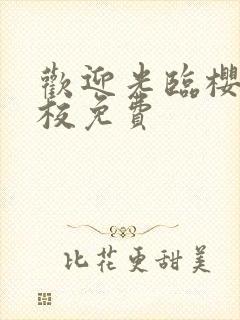 歡迎光臨櫻
板免費
比花更甜美